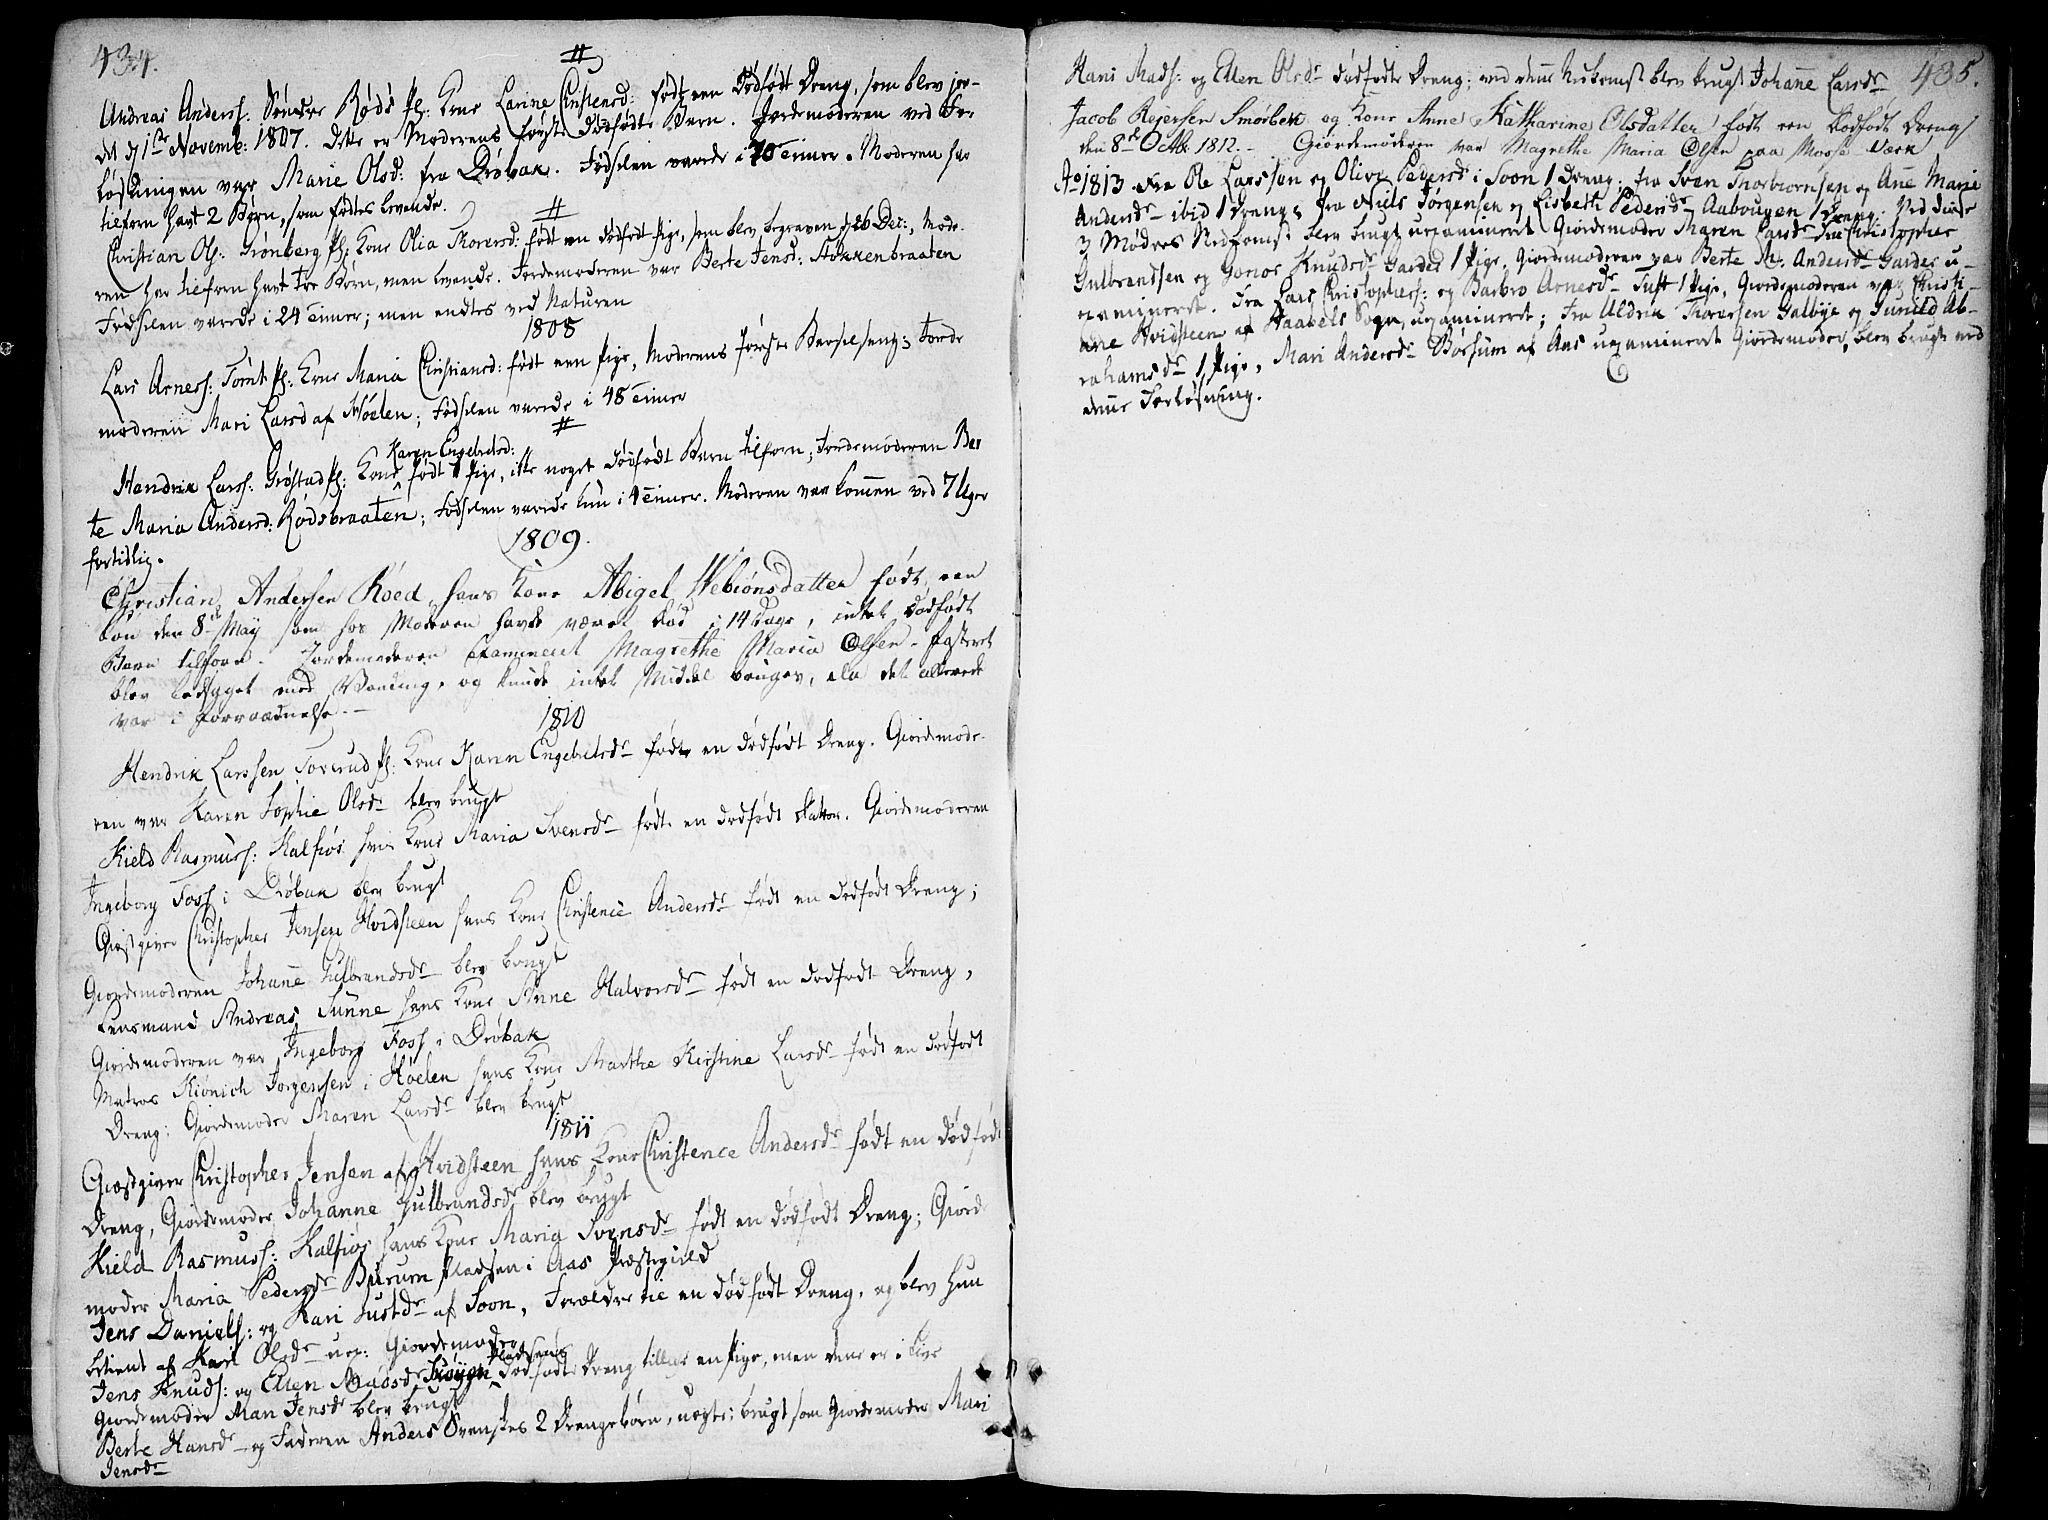 434.
#
Andreas Anders: Søndre Røds Pl: Kone Larine Christensd: født een Dødfødt Dreng, som blev jor-
det d 1ste Novemb: 1807. Dette er Moderens første dødfødte Barn. Jordemoderen ved For
løsningen var Marie Olsd: fra Drøbak. Fødselen varede i 70 Timer. Moderen har
tilforn havt 2 Børn, som fødtes levende.
#
Christian Ols: Grønberg Pl: Kone Olia Thoresd: født een dødfødt Pige, som blev begraven d 26 Dec:, Mode-
ren har tilforn havt tre Børn, men levende. Jordemoderen var Berte Jensd: Stokkenbraaten
Fødselen varede i 24 Timer; men endtes ved Naturen
1808
Lars Arness: Tomt Pl: Kone Maria Christiansd: født een Pige, Moderens første Barselseng; Jorde
moderen Mari Larsd af Hølen; Fødselen varede i 48 Timer
#
Karen Engebretsd:
Hendrik Larss: Grøstad Pl: Kone født 1 Pige, ikke noget Dødfødt Barn tilforn; Jordemoderen Ber
te Maria Andersd: Rødsbraaten; Fødselen varede kun i 4 Timer. Moderen var kommen ved 7 Uger
fortidlig.
1809.
Christian Andersen Röed, hans Kone Abigel Webiönsdatter født een
Søn den 8de May som hos Moderen havde været død i 14 Dage, intet Dødfødt
Barn tilforn. Jordemoderen Examineret Magrethe Maria Olsen. Fosteret
blev ledsaget med Vending, og kunde intet Middel bruges, da det allerede
var i Forraadnelse.-
1810
Hendrik Larssen Toverud Pl: Kone Karen Engebretsdr født en dødfødt Dreng. Giordemode-
ren var Karen Sophie Olsdr blev brugt
Kield Rasmuss: Kalfiøs hans Kone Maria Svensdr født en dødfødt Datter. Giordemoderen
Ingeborg Foss i Drøbak blev brugt
Giestgiver Christopher Jensen Hvidsteen hans Kone Christence Andersdr født en dødfødt Dreng;
Giordemoderen Johanne Gulbrandsdr blev brugt
Lensmand Andreas Sunne hans Kone Anne Halvorsdr født en dødfødt Dreng,
Giordemoderen var Ingeborg Foss i Drøbak
Matros Kiönich Jørgensen i Høelen hans Kone Marthe Kirstine Larsdr født en dødfødt
Dreng; Giordemoder Maren Larsdr blev brugt
1811
Giæstgiver Christopher Jensen af Hvidsteen hans Kone Christence Andersdr født en dødfødt
Dreng, Giordemoder Johanne Gulbrandsdr blev brugt
Kield Rasmuss: Kalfiøs hans Kone Maria Svensdr født en dødfødt Dreng; Giord
moder Maria Pedersdr Burum Pladsen i Aas Præstegield
Jens Daniels: og Kari Justdr af Soon, Forældre til en dødfødt Dreng, og blev hun
betient af Kari Olsdr uex: Giordemoder
Pladsens
Jens Knuds: og Ellen Madsdr Skøyen dødfødt Dreng tillige en Pige, men denne er i Live
Giordemoder Mari Jensdr blev brugt
Berte Hansdr og Faderen Anders Svenskes 2 Drengebørn, uægte; brugt som Giordemoder Mari
Jensdr
485.
Hans Mads: og Ellen Olsdr dødfødte Dreng; ved denne Nedkomst blev brugt Johanne Larsdr
Jacob Rejersen Smörbek og Kone Anne Katharine Olsdatter født een dødfødt Dreng
den 8de Octbr 1812.- Giordemoderen var Magrethe Maria Olsen paa Mosse Værk
Ao 1813. Fra Ole Larssen og Olive Pedersdr i Soon 1 Dreng; fra Sven Thorbiornsen og Ane Marie
Andersdr ibid 1 Dreng; fra Niels Jørgensen og Lisbeth Pedersdr Aabougen 1 Dreng. Ved disse
3 Mødres Nedkomst blev brugt uexamineret Giordemoder Maren Larsdr. Fra Christopher
Gulbrandsen og Gonor Knudsdr Garder 1 Pige, Giordemoderen var Berte M. Andersdr Garder u-
examineret. Fra Lars Christophers: og Barbro Arnesdr Tuft 1 Pige, Giordemoderen var Christi-
ane Hvidsteen af Haabels Sogn, uexamineret; Fra Uldrik Thoresen Galbye og Gunild Ab-
rahamsdr 1 Pige, Mari Andersdr Börsum af Aas uexamineret Giordemoder, blev brugt ved
denne Forløsning.